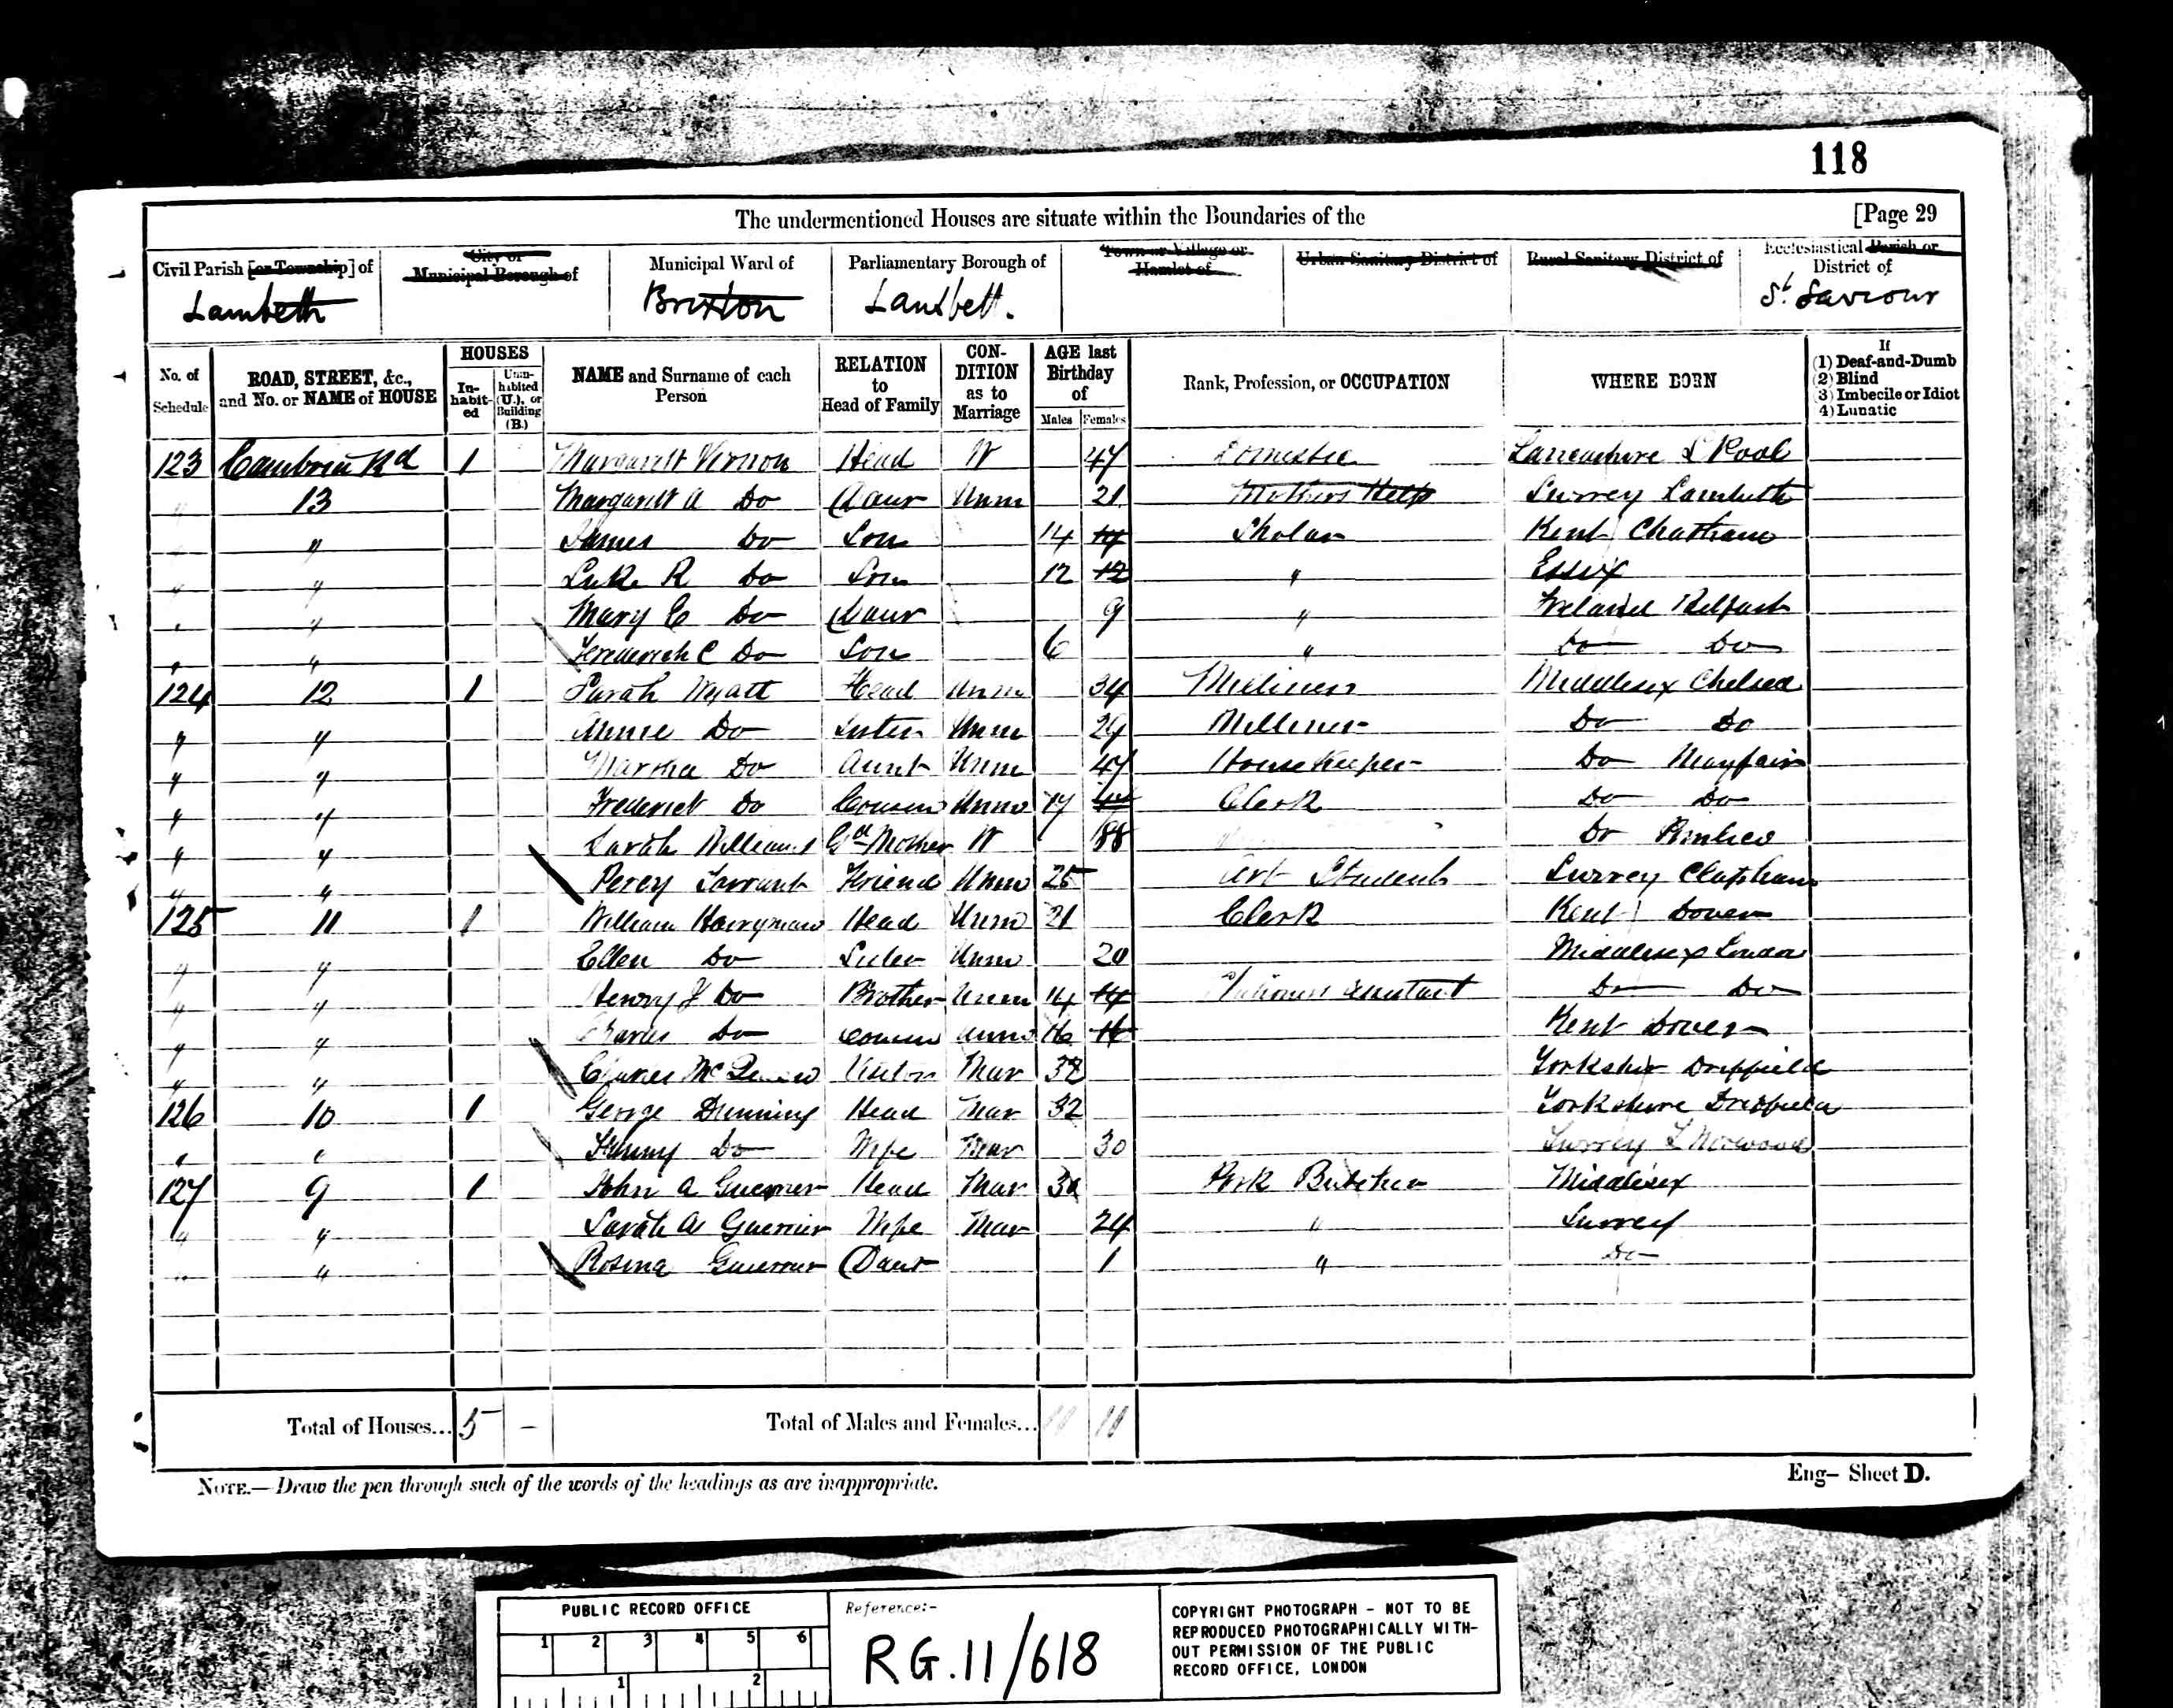 118
The undermentioned Houses are situate within the Boundaries of the [Page 29
Civil Parish [or Township] of
Lambeth
City or Municipal Borough of
Municipal Ward of
Brixton
Parliamentary Borough of
Lambeth.
Town or Village or Hamlet of
Urban Sanitary District of
Rural Sanitary District of
Ecclesiastical Parish or District of
St. Saviour
No. of Schedule
ROAD, STREET, &c., and No. or NAME of HOUSE
HOUSES
In-habit-ed
Unin-habited (U.), or Building (B.)
NAME and Surname of each Person
RELATION to Head of Family
CON-DITION as to Marriage
AGE last Birthday of
Males Females
Rank, Profession, or OCCUPATION
WHERE BORN
If
(1) Deaf-and-Dumb
(2) Blind
(3) Imbecile or Idiot
(4) Lunatic
123 Cambria Rd 1 Margarett Vernon Head W 47 Domestic Lancashire L Pool
" 13 Margarett A Do Daur Unm 21 Mothers Help Surrey Lambeth
" " James Do Son 14 14 Scholar Kent Chatham
" " Luke R Do Son 12 12 " Essex
" " Mary E Do Daur 9 " Ireland Belfast
" " Frederich C Do Son 6 " Do Do
124 12 1 Sarah Wyatt Head Unm 34 Milliner Middlesex Chelsea
" " Annie Do Sister Unm 29 Milliner Do Do
" " Martha Do Aunt Unm 47 Housekeeper Do Mayfair
" " Frederick Do Cousin Unm 17 Clerk Do Do
" " Sarah Williams Gd Mother W 88 Do Pimlico
" " Percy Tarrant Friend Unm 25 Art Student Surrey Clapham
125 11 1 William Harryman Head Unm 21 Clerk Kent Dover
" " Ellen Do Sister Unm 20 Middlesex London
" " Henry J Do Brother Unm 14 14 Assistant Do Do
" " Charles Do Cousin Unm 16 16 Kent Dover
" " Charles Mc Visitor Mar 32 Yorkshire Driffield
126 10 1 George Dunning Head Mar 32 Yorkshire Driffield
" " Fanny Do Wife Mar 30 Surrey Norwood
127 9 1 John A Guerrier Head Mar 30 Pork Butcher Middlesex
" " Sarah A Guerrier Wife Mar 24 " Surrey
" " Rosina Guerrier Daur 1 " Do
Total of Houses... 5 – Total of Males and Females... 11 11
NOTE.—Draw the pen through such of the words of the headings as are inappropriate.
Eng– Sheet D.
PUBLIC RECORD OFFICE
1 2 3 4 5 6
1 2
Reference:-
RG.11/618
COPYRIGHT PHOTOGRAPH - NOT TO BE
REPRODUCED PHOTOGRAPHICALLY WITH-
OUT PERMISSION OF THE PUBLIC
RECORD OFFICE, LONDON